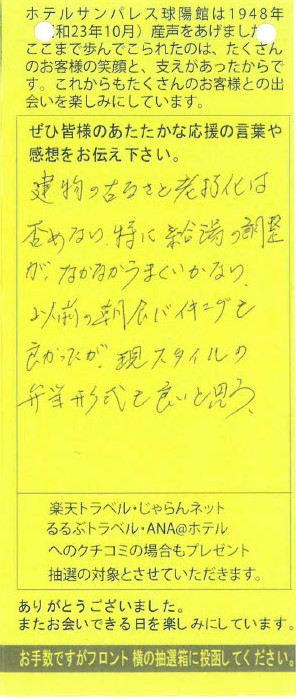 ホテルサンパレス球陽館は1948年
和23年10月）産声をあげました
ここまで歩んでこられたのは、たくさん
のお客様の笑顔と、支えがあったからで
す。これからもたくさんのお客様との出
会いを楽しみにしています。
ぜひ皆様のあたたかな応援の言葉や
感想をお伝え下さい。
建物の古るさと老朽化は
否めない、特に給湯の調整
が、なかなかうまくいかない、
以前の朝食バイキングも
良かったが、現スタイルの
弁当形式も良いと思う、
楽天トラベル・じゃらんネット
るるぶトラベル・ANA@ホテル
へのクチコミの場合もプレゼント
抽選の対象とさせていただきます。
ありがとうございました。
またお会いできる日を楽しみにしています。
お手数ですがフロント横の抽選箱に投函してください。